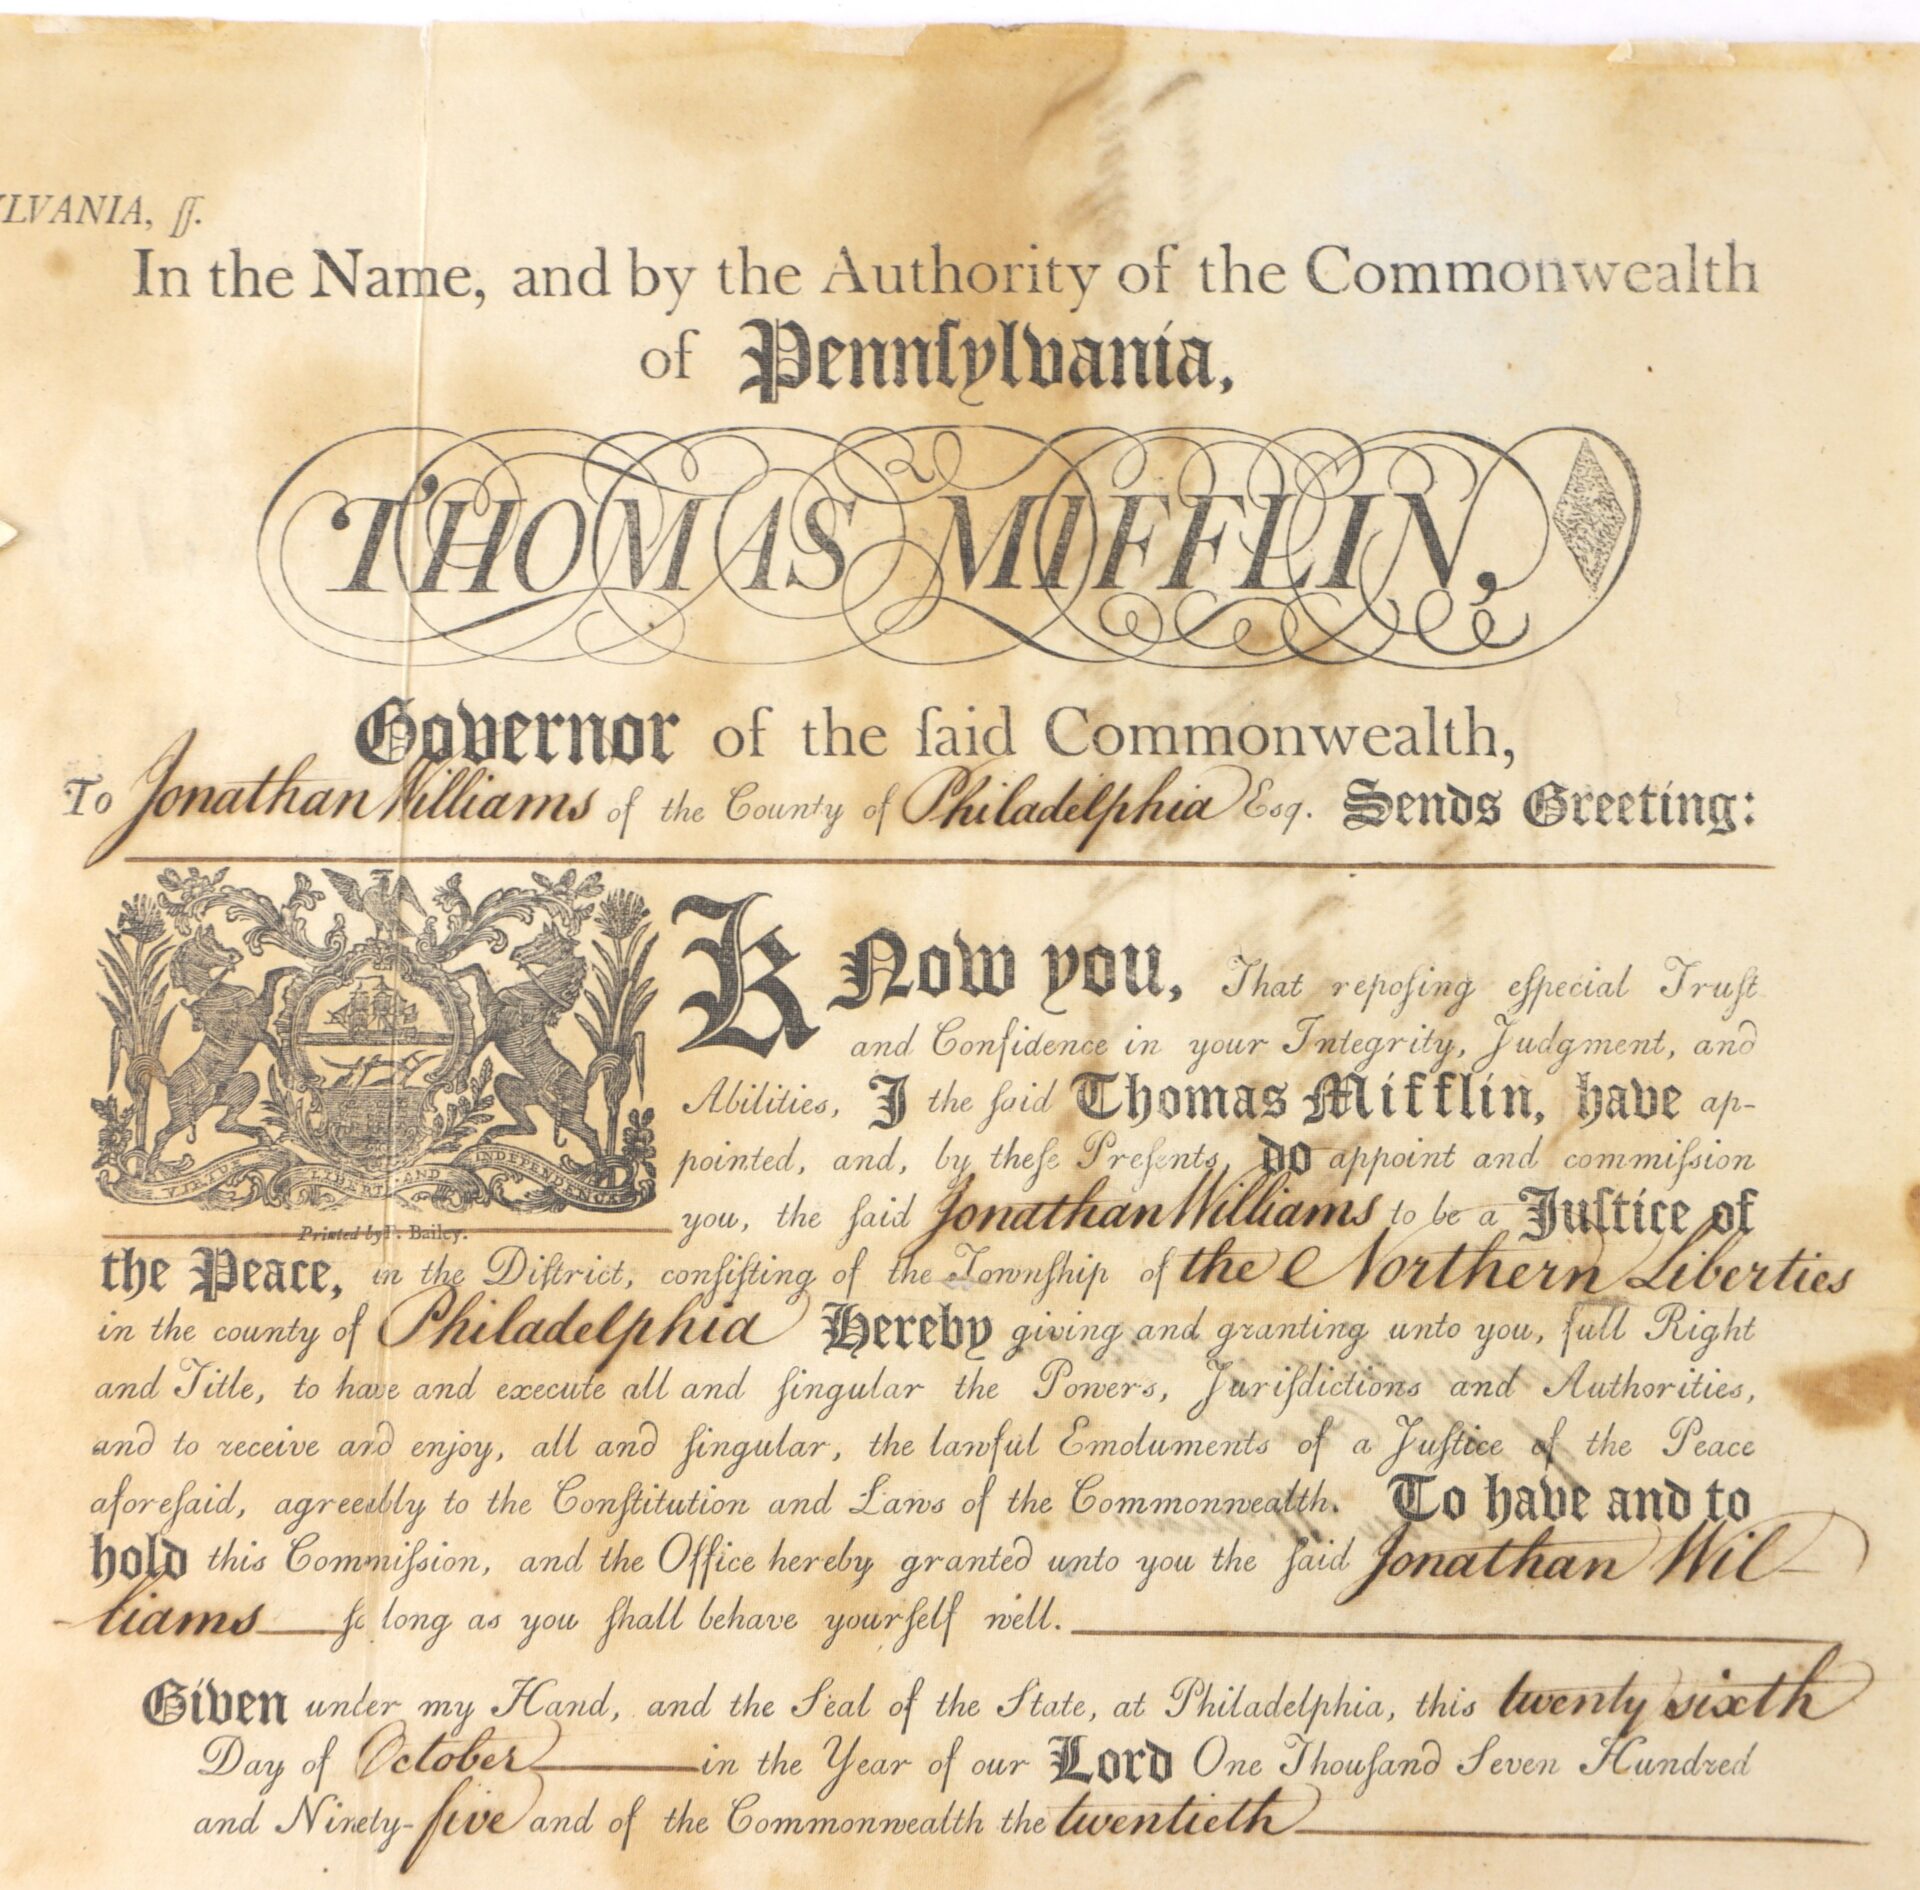 LVANIA, ſſ.
In the Name, and by the Authority of the Commonwealth
of Pennſylvania,
THOMAS MIFFLIN,
Governor of the ſaid Commonwealth,
To Jonathan Williams of the County of Philadelphia Esq. Sends Greeting:
KNow you, That repoſing eſpecial Truſt
and Confidence in your Integrity, Judgment, and
Abilities, I the ſaid Thomas Mifflin, have ap-
pointed, and, by theſe Preſents, do appoint and commiſsion
VIRTUE LIBERTY AND INDEPENDENCE
you, the ſaid Jonathan Williams to be a Juſtice of
Printed by F. Bailey.
the Peace, in the Diſtrict, conſiſting of the Townſhip of the Northern Liberties
in the county of Philadelphia Hereby giving and granting unto you, full Right
and Title, to have and execute all and ſingular the Powers, Juriſdictions and Authorities,
and to receive and enjoy, all and ſingular, the lawful Emoluments of a Juſtice of the Peace
aforeſaid, agreeably to the Conſtitution and Laws of the Commonwealth. To have and to
hold this Commiſsion, and the Office hereby granted unto you the ſaid Jonathan Wil-
liams so long as you ſhall behave yourſelf well.
Given under my Hand, and the Seal of the State, at Philadelphia, this twenty sixth
Day of October in the Year of our Lord One Thouſand Seven Hundred
and Ninety-five and of the Commonwealth the twentieth